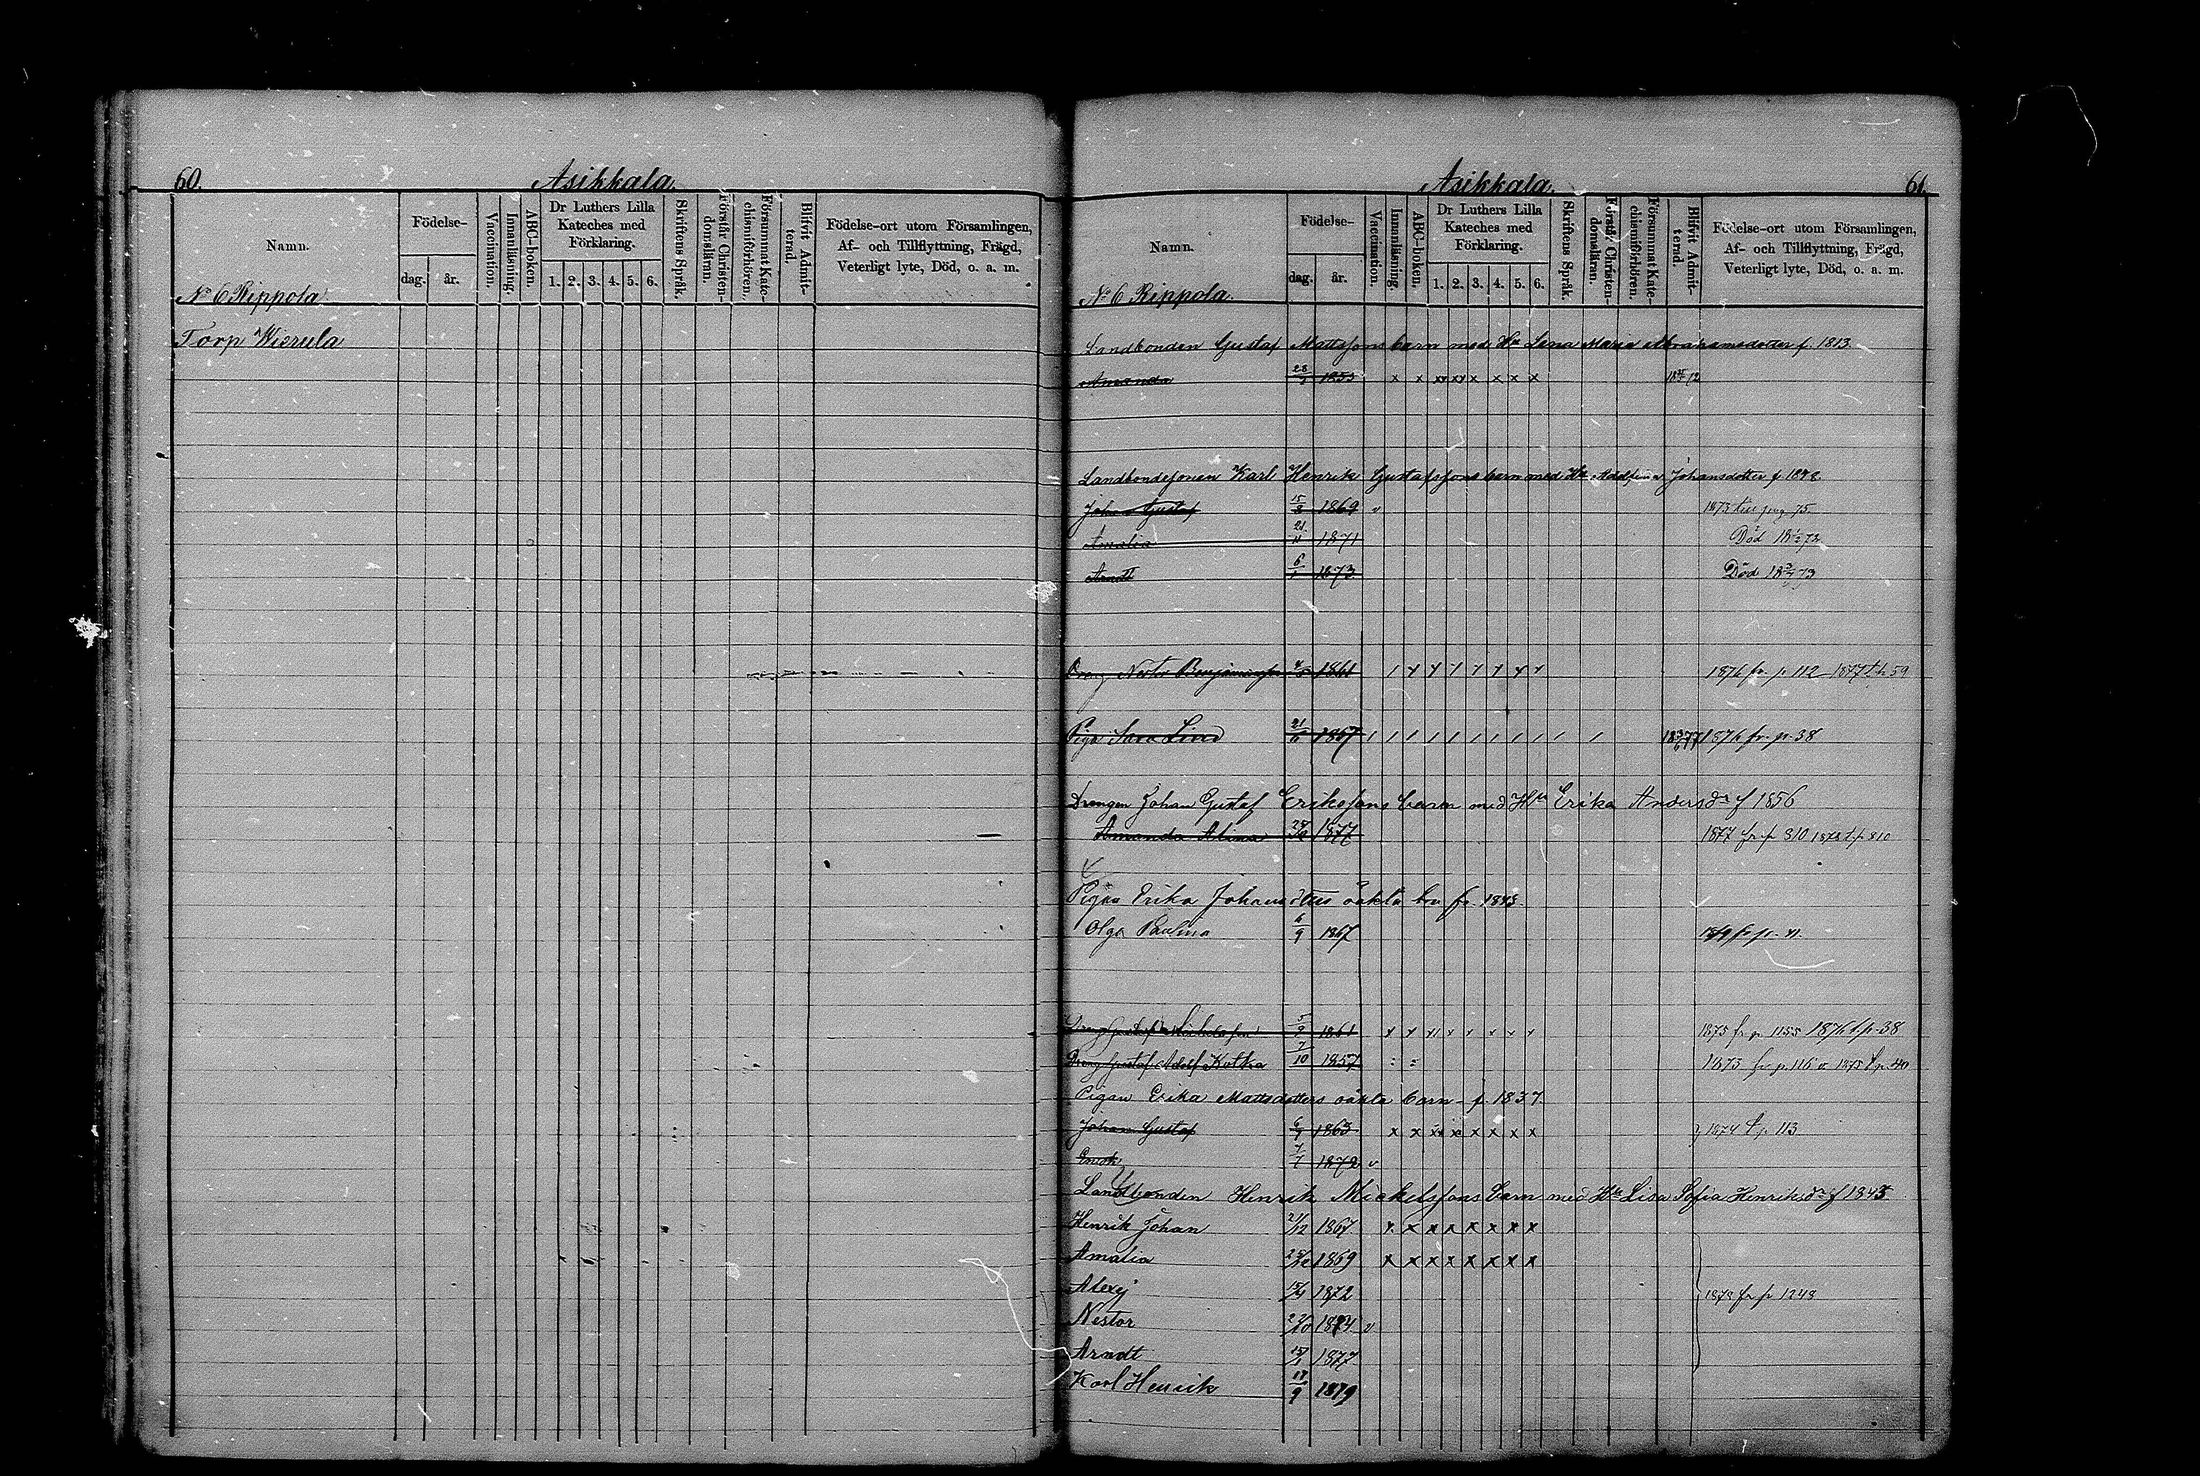 60.
Asikkala.
Namn.
Födelse-
dag.
år.
Vaccination.
Innanläsning.
ABC-boken.
Dr Luthers Lilla
Kateches med
Förklaring.
1. 2. 3. 4. 5. 6.
Skriftens Språk.
Förstår Christen-
domsläran.
Försummat Kate-
chismiförhören.
Blifvit Admit-
terad.
Födelse-ort utom Församlingen,
Af- och Tillflyttning, Frägd,
Veterligt lyte, Död, o. a. m.
No 6 Rippola
Torp Wierula
Asikkala.
61.
Namn.
Födelse-
dag.
år.
Vaccination.
Innanläsning.
ABC-boken.
Dr Luthers Lilla
Kateches med
Förklaring.
1. 2. 3. 4. 5. 6.
Skriftens Språk.
Förstår Christen-
domsläran.
Försummat Kate-
chismiförhören.
Blifvit Admit-
terad.
Födelse-ort utom Församlingen,
Af- och Tillflyttning, Frägd,
Veterligt lyte, Död, o. a. m.
No 6 Rippola.
Landbonden Gustaf Mattssons barn med Hu Lena Maria Abrahamsdotter f. 1813.
Amanda x x xx xx x x x x
Landbondesonen Karl Henrik Gustafssons barn med Hu Johansdotter f 1848
Johan Gustaf 15/8 1869 v 1873 till pag. 75
Amalia 21/11 1871 Död
Arndt 6/1 1873 Död
Dräng Nestor 1861 1876 fr. p 112 1877 t p 59
Piga Sara Lind 1876 fr. p. 38
Drengen Johan Gustaf Erikssons barn med Hu Erika Andersdr f 1856
Amanda Alina 1877 1877 fr p 310 1878 t p 810
Pigan Erika Johansdtrs oäkta brn f. 1843.
Olga Paulina 6/9 1867
Dräng 5/9 1861 x x x x x x x x 1875 fr. p. 1155 1876 t. p. 38
Dräng Gustaf Adolf Kotka 7/10 1857 1873 fr p. 116
Pigan Erika Mattsdotters oäkta barn - f. 1837.
Johan Gustaf 1863 x x xx x x x x x 1874 t p. 113
Enok 7/7 1872 v
Landbonden Henrik Mickelssons barn med Hu Lisa Sofia Henriksdr f 1843
Henrik Johan 21/12 1867 x x x x x x x x
Amalia 1869 x x x x x x x x
Alexej 15/4 1872 1878 fr p 1248
Nestor 1874 v
Arndt 15/1 1877
Karl Henrik 17/9 1879